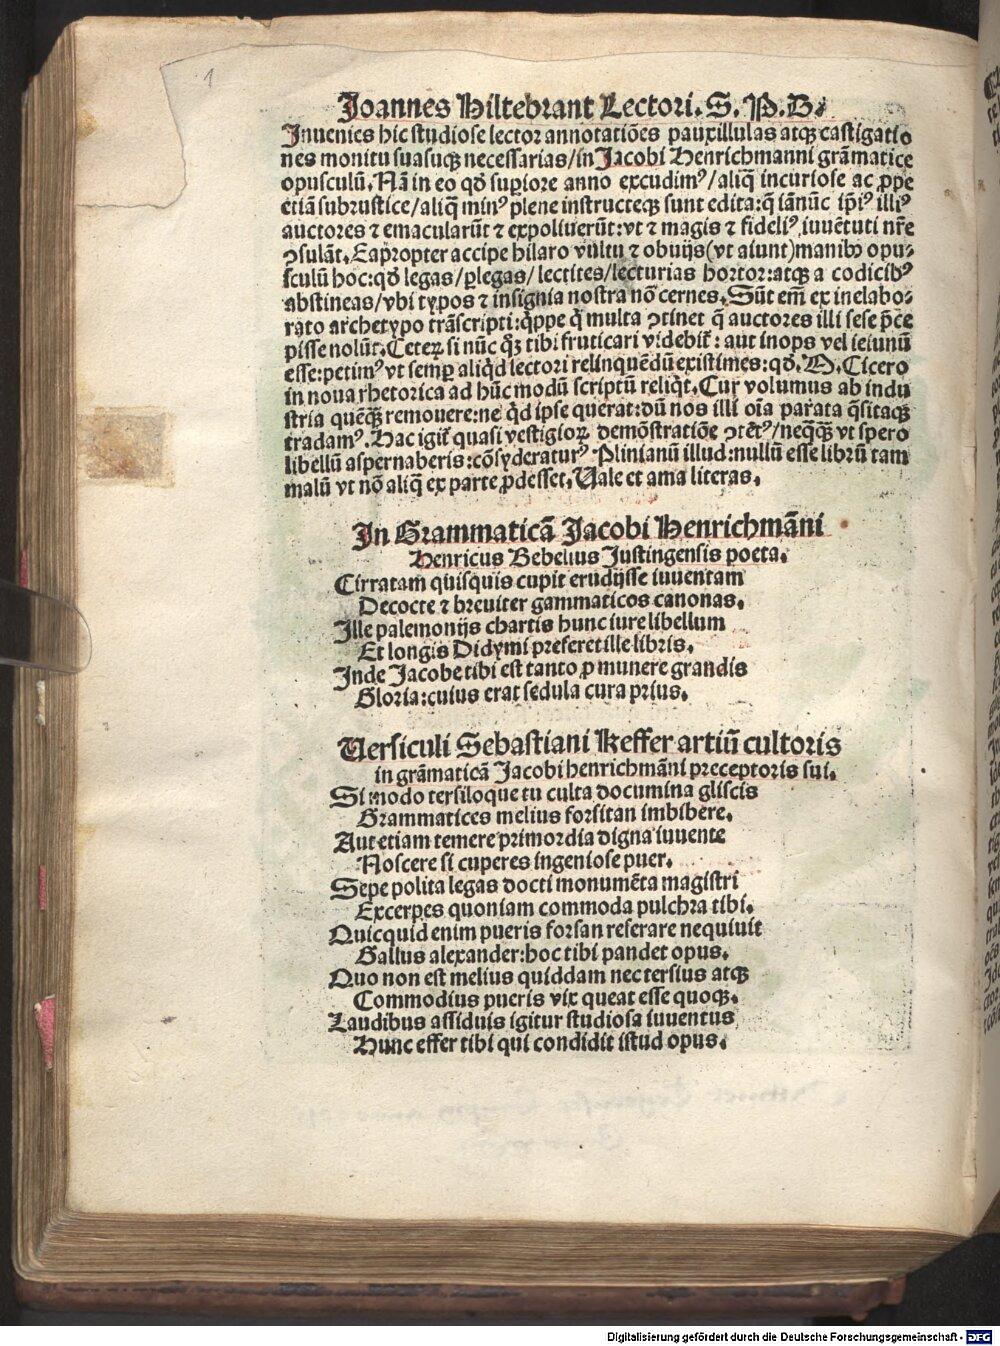 1
Joannes Hiltebrant Lectori. S. P. D.
Inuenies hic studiose lector annotatiōes pauxillulas atqꝫ castigatio
nes monitu suasuqꝫ necessarias/in Jacobi Henrichmanni grām̄atice
opusculū. Nā in eo qd̄ supiore anno excudimꝰ/aliq̄ incuriose ac ꝓpe
etiā subrustice/aliq̄ minꝰ plene instructeqꝫ sunt edita: q̄ iānūc ip̄iꝰ illiꝰ
auctores ⁊ emacularūt ⁊ expoliuerūt: vt ⁊ magis ⁊ fideliꝰ iuuētuti nr̄e
ↄsulāt. Eapropter accipe hilaro vultu ⁊ obuijs (vt aiunt) manibꝰ opu⸗
sculū hoc: qd̄ legas/ꝑlegas/lectites/lecturias hortor: atqꝫ a codicibꝰ
abstineas/vbi typos ⁊ insignia nostra nō cernes. Sūt em̄ ex inelabo⸗
rato archetypo trāscripti: q̄ppe q̄ multa ↄtinet q̄ auctores illi sese p̄ce
pisse nolūt. Ceteꝝ si nūc qꝫ tibi fruticari videbit᷑: aut inops vel ieiunū
esse: petimꝰ vt semꝑ aliqd̄ lectori relinquēdū existimes: qd̄. M. Cicero
in noua rhetorica ad hūc modū scriptū reliq̄t. Cur volumus ab indu
stria quēqꝫ remouere: ne q̄d ipse querat: dū nos illi oīa parata q̄sitaqꝫ
tradamꝰ. Hac igit᷑ quasi vestigioꝝ demōstratiōe ↄtētꝰ/neqꝗꝫ vt spero
libellū aspernaberis: cōsyderaturꝰ Plinianū illud: nullū esse librū tam
malū vt nō aliq̄ ex parte ꝓdesset. Uale et ama literas.
In Grammaticā Jacobi Henrichmāni
Henricus Bebelius Justingensis poeta.
Cirratam quisquis cupit erudijsse iuuentam
Decocte ⁊ breuiter gammaticos canonas.
Ille palemonijs chartis hunc iure libellum
Et longis Didymi preferet ille libris.
Inde Jacobe tibi est tanto ꝓ munere grandis
Gloria: cuius erat sedula cura prius.
Uersiculi Sebastiani Keffer artiū cultoris
in grāmaticā Jacobi henrichmāni preceptoris sui.
Si modo tersiloque tu culta documina gliscis
Grammatices melius forsitan imbibere.
Aut etiam temere primordia digna iuuente
Noscere si cuperes ingeniose puer.
Sepe polita legas docti monumēta magistri
Excerpes quoniam commoda pulchra tibi.
Quicquid enim pueris forsan referare nequiuit
Gallus alexander: hoc tibi pandet opus.
Quo non est melius quiddam nec tersius atqꝫ
Commodius pueris vix queat esse quoqꝫ.
Laudibus assiduis igitur studiosa iuuentus
Hunc effer tibi qui condidit istud opus.
Digitalisierung gefördert durch die Deutsche Forschungsgemeinschaft - DFG